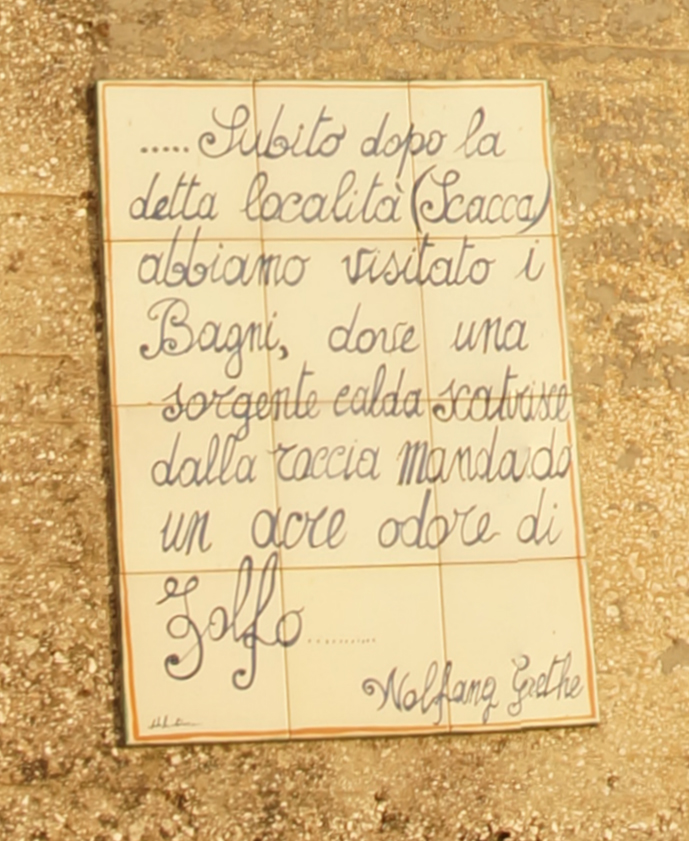 ..... Subito dopo la
detta località (Scacca)
abbiamo visitato i
Bagni, dove una
sorgente calda scaturisce
dalla roccia mandado
un acre odore di
Zolfo..........
Wolfang Grethe